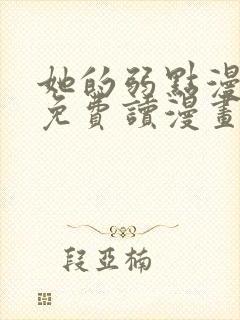 她的弱點漫
免費讀漫畫
段亞楠